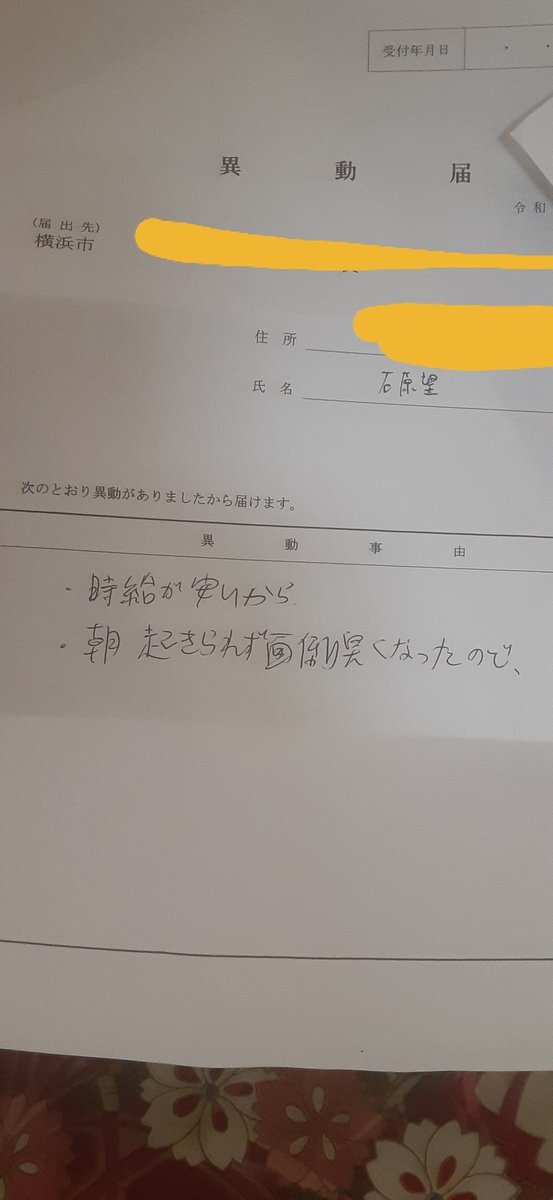 受付年月日 ・ ・
異動届
令和
(届出先)
横浜市
住所
氏名 石原望
次のとおり異動がありましたから届けます。
異動事由
・時給が安いから.
・朝起きられず面倒臭くなったので、